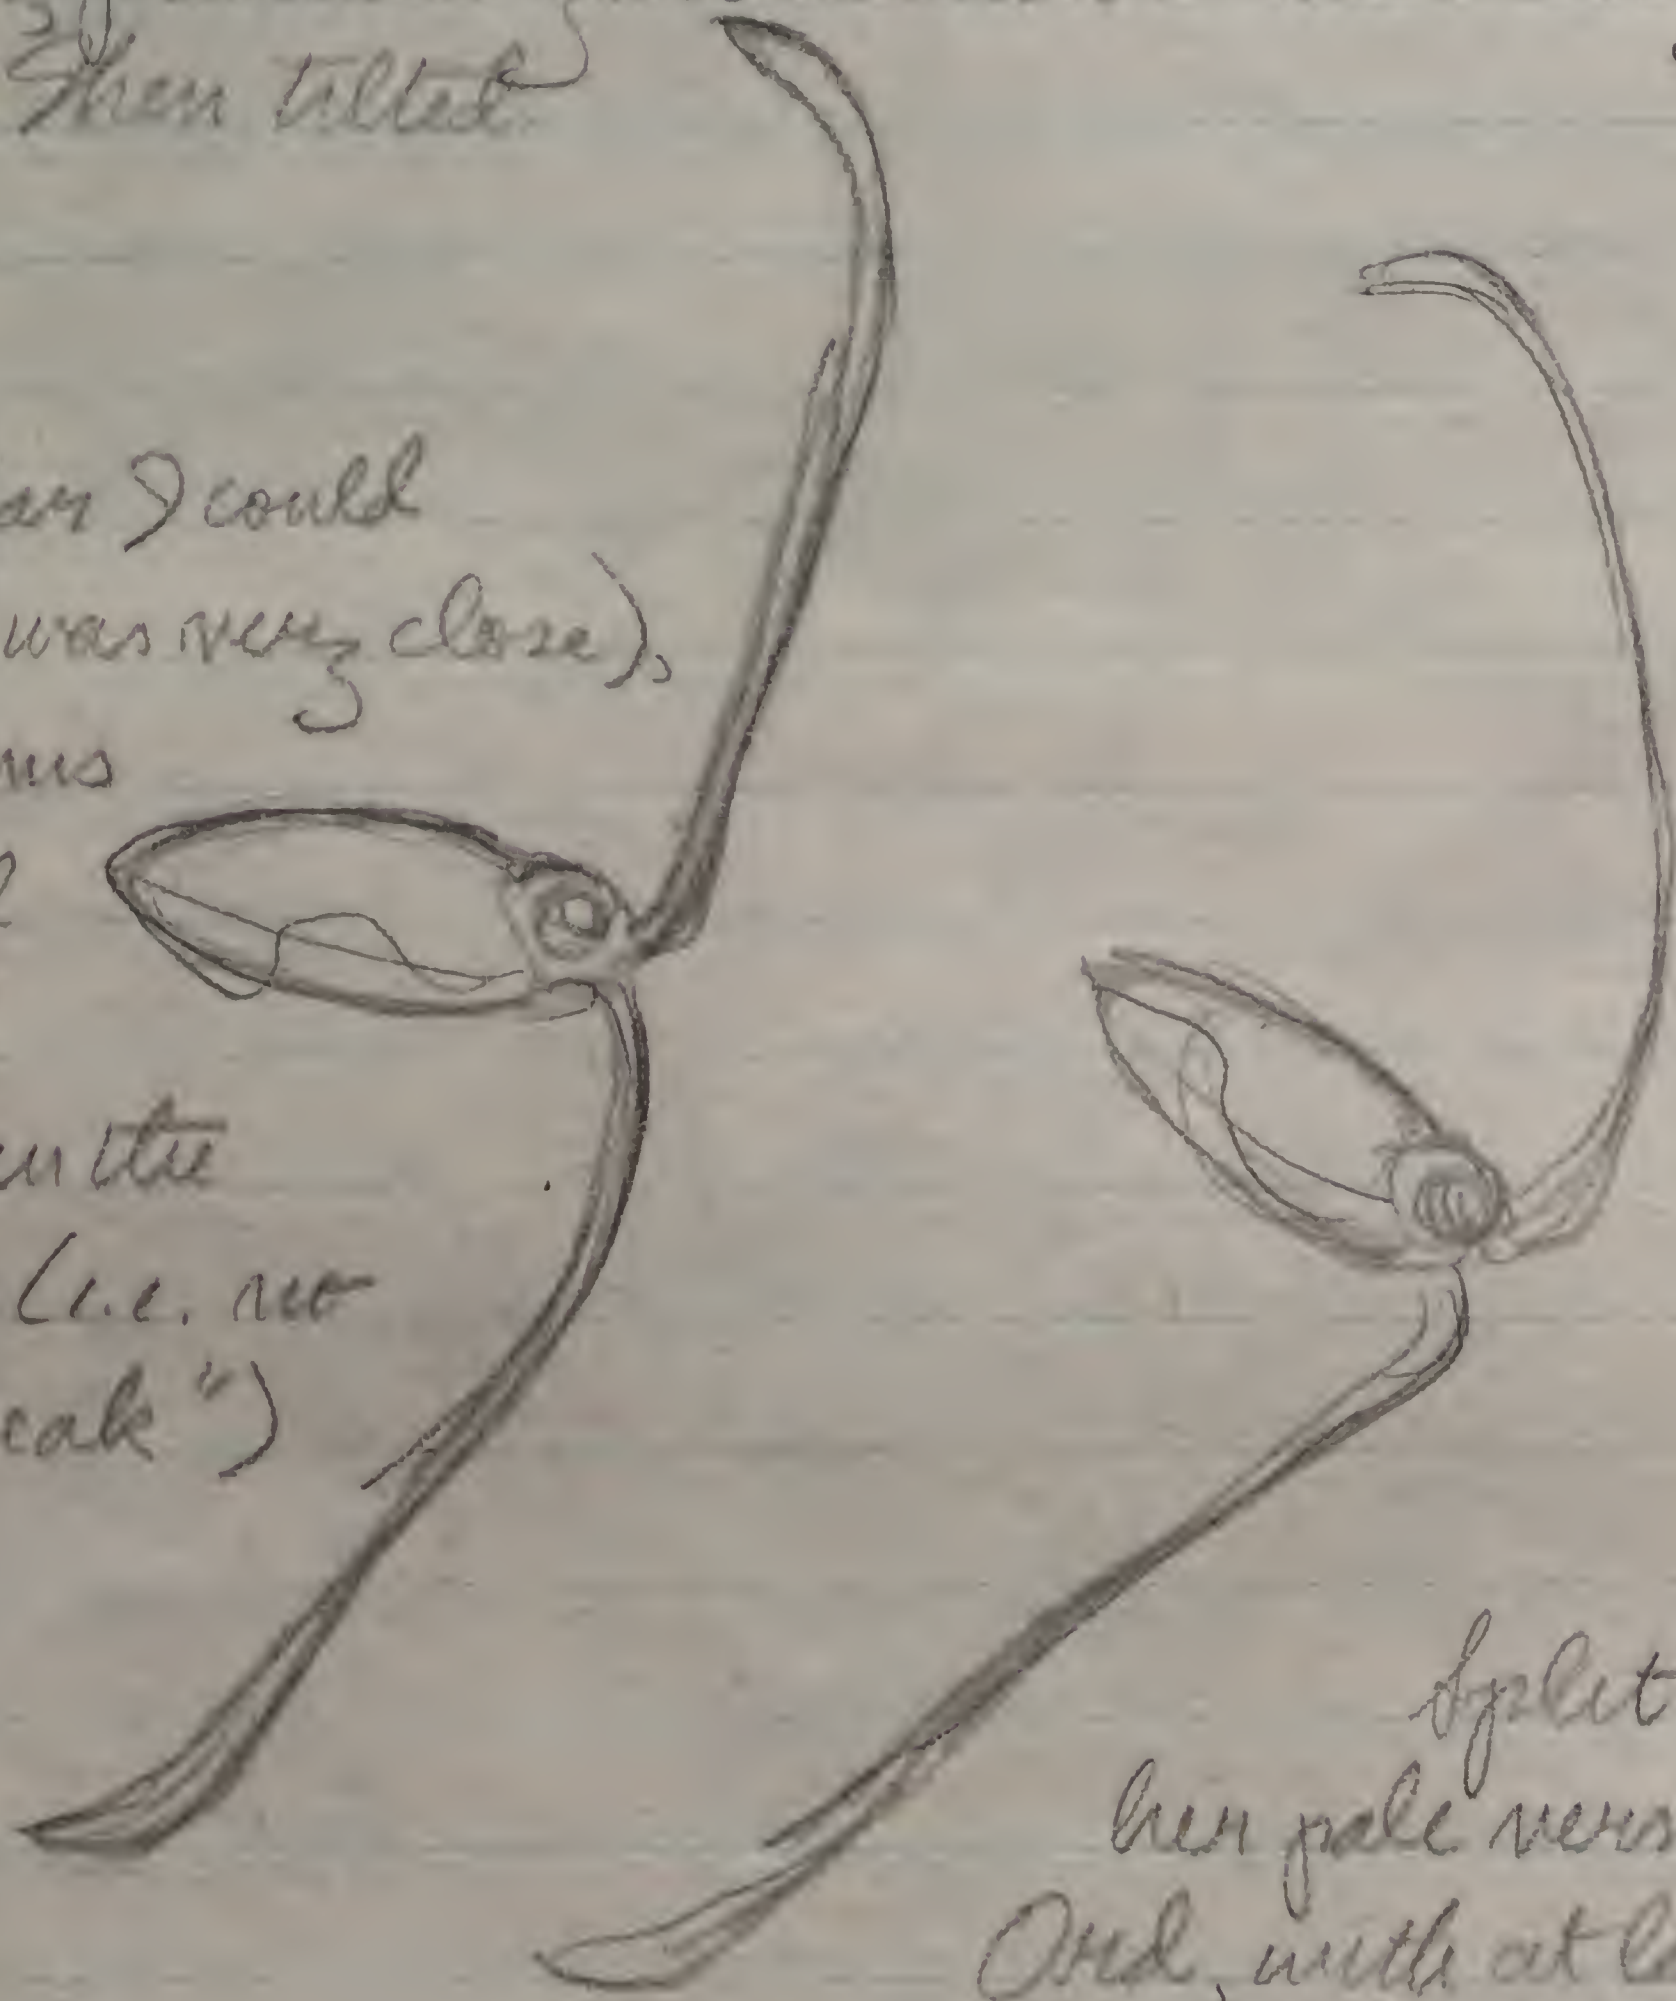 Then tilted
I could
was very close),
in the
(i.e. no
eak")
Split
her pale vers
Ord, with at l